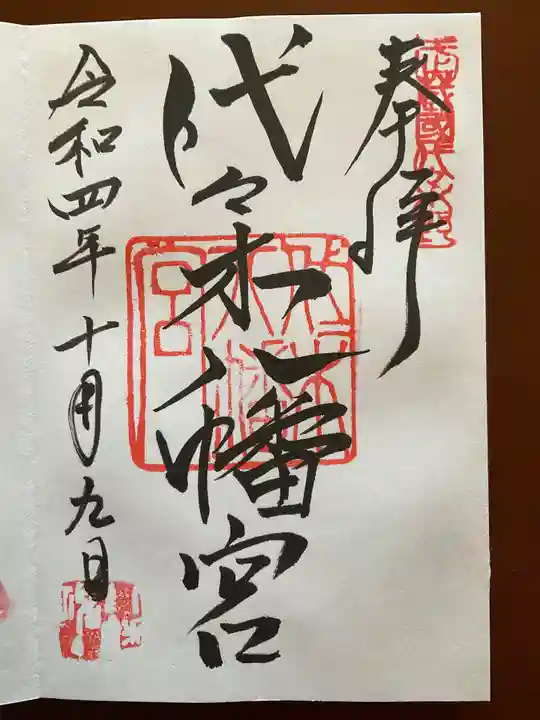 奉拝
代々木八幡宮
令和四年十月九日